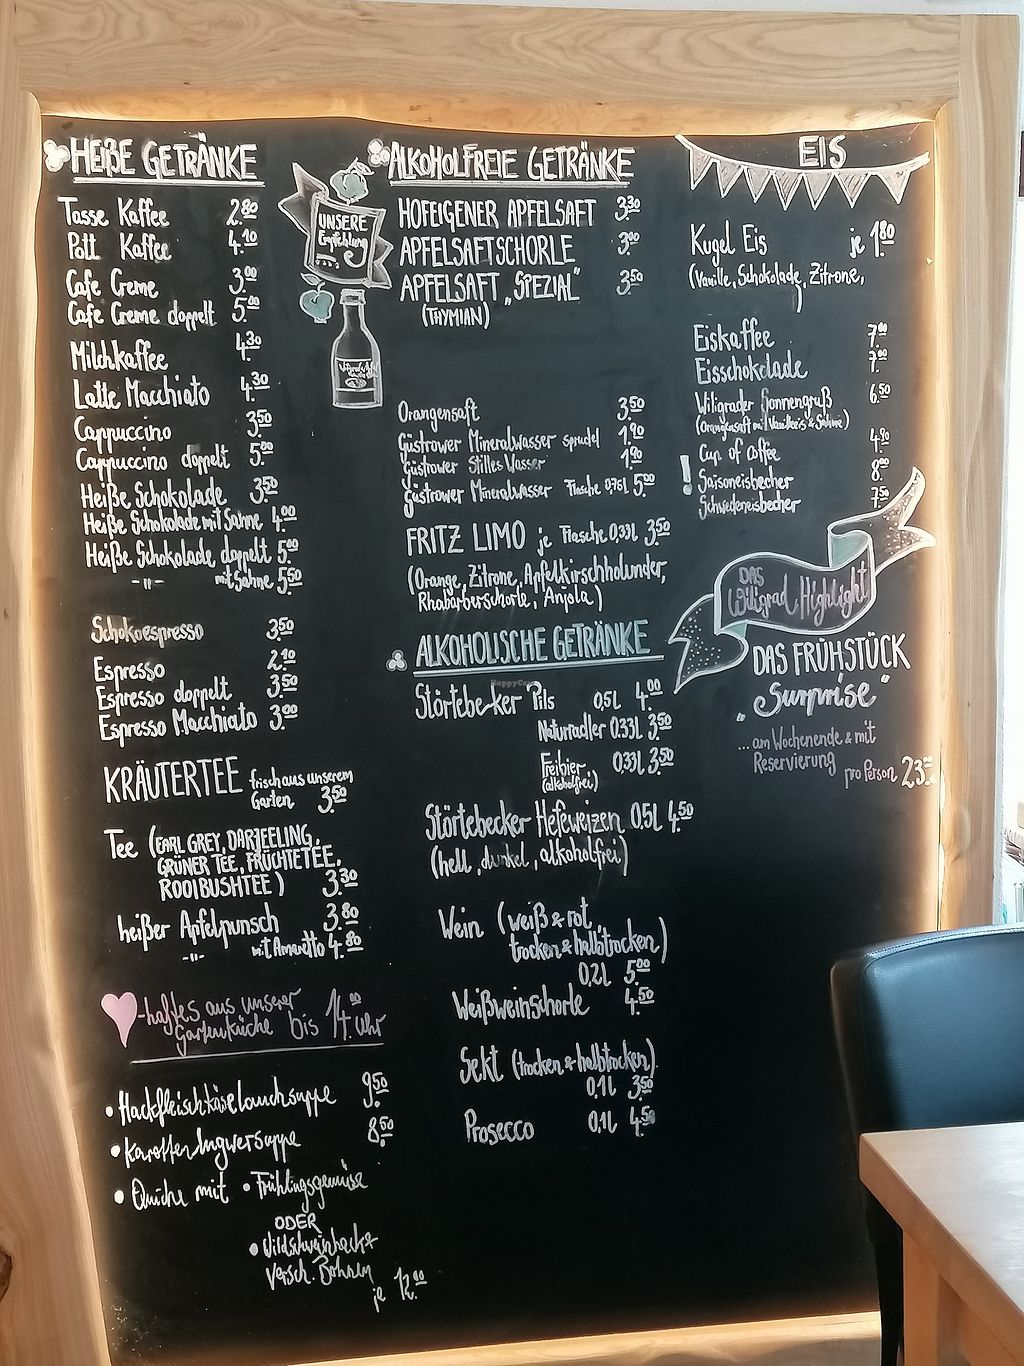 HEIßE GETRÄNKE
Tasse Kaffee 2.80
Pott Kaffee 4.10
Cafe Creme 3.00
Cafe Creme doppelt 5.00
Milchkaffee 4.30
Latte Macchiato 4.30
Cappuccino 3.50
Cappuccino doppelt 5.00
Heiße Schokolade 3.50
Heiße Schokolade mit Sahne 4.00
Heiße Schokolade doppelt 5.00
-"- mit Sahne 5.50
Schokoespresso 3.50
Espresso 2.10
Espresso doppelt 3.50
Espresso Macchiato 3.00
KRÄUTERTEE frisch aus unserem
Garten 3.50
Tee (EARL GREY, DARJEELING,
GRÜNER TEE, FRÜCHTETEE,
ROOIBUSHTEE) 3.30
heißer Apfelpunsch 3.80
-"- mit Amaretto 4.80
-haftes aus unserer
Gartenküche bis 14.00 Uhr
• Hackfleischkäselauchsuppe 9.50
• Karotten Ingwersuppe 8.50
• Quiche mit • Frühlingsgemüse
ODER
• Wildschweinhack &
versch. Bohnen
je 12.00
UNSERE
Empfehlung
ALKOHOLFREIE GETRÄNKE
HOFEIGENER APFELSAFT 3.30
APFELSAFTSCHORLE 3.00
APFELSAFT „SPEZIAL" 3.50
(THYMIAN)
Orangensaft 3.50
Güstrower Mineralwasser sprudel 1.90
Güstrower Stilles Wasser 1.90
Güstrower Mineralwasser Flasche 0,75l 5.00
FRITZ LIMO je Flasche 0,33l 3.50
(Orange, Zitrone, Apfelkirschholunder,
Rhabarberschorle, Anjola)
ALKOHOLISCHE GETRÄNKE
HappyCow
Störtebeker Pils 0,5l 4.00
Naturradler 0.33l 3.50
Freibier 0,33l 3.50
(alkoholfrei)
Störtebecker Hefeweizen 0.5l 4.50
(hell, dunkel, alkoholfrei)
Wein (weiß & rot,
trocken & halbtrocken)
0,2l 5.00
Weißweinschorle 4.50
Sekt (trocken & halbtrocken)
0,1l 3.50
Prosecco 0,1l 4.50
EIS
Kugel Eis je 1.80
(Vanille, Schokolade, Zitrone,
)
Eiskaffee 7.00
Eisschokolade 7.00
Wiligrader Sonnengruß 6.50
(Orangensaft mit Vanilleeis & Sahne)
Cup of Coffee 4.90
! Saisoneisbecher 8.00
Schwedeneisbecher 7.50
DAS
Wiligrad Highlight
DAS FRÜHSTÜCK
„Surprise"
...am Wochenende & mit
Reservierung
pro Person 23.00